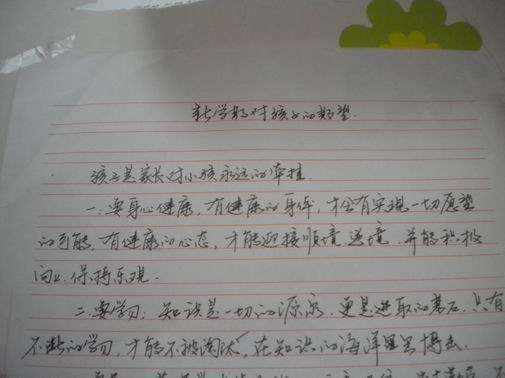 新学期对孩子的期望
孩子是家长对小孩永远的牵挂
一、要身心健康,有健康的身体,才会有实现一切愿望
的可能,有健康的心态,才能迎接顺境、逆境,并能积极
向上,保持乐观.
二、要学习:知识是一切的源泉,更是进取的基石,只有
不断的学习,才能不被淘汰,在知识的海洋里里搏击.